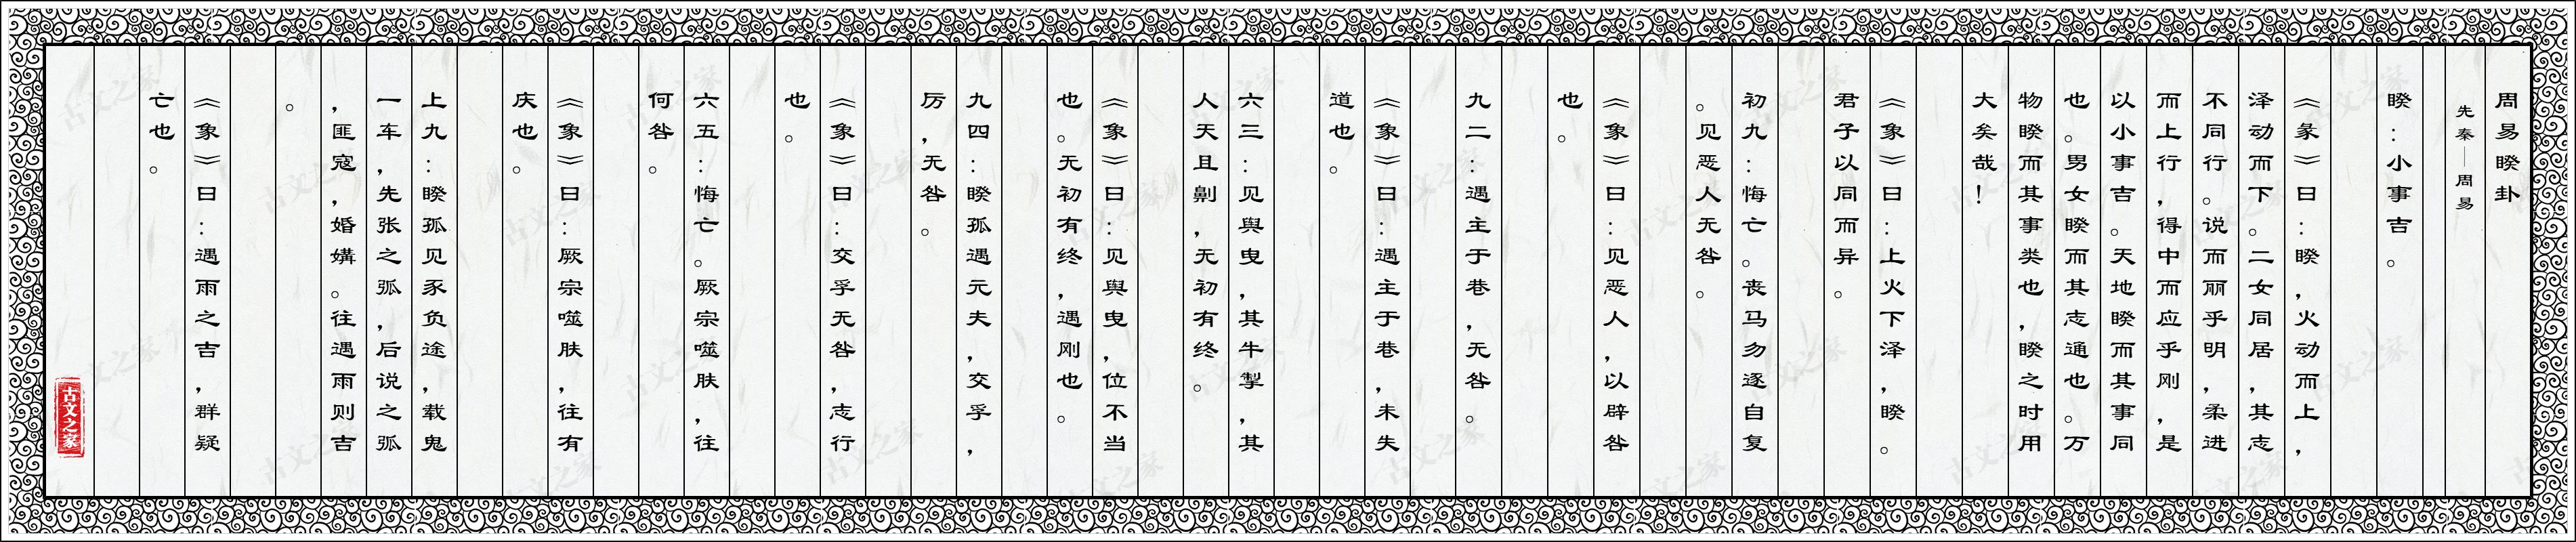 周易睽卦
先秦—周易
睽：小事吉。
《彖》曰：睽，火动而上，
泽动而下。二女同居，其志
不同行。说而丽乎明，柔进
而上行，得中而应乎刚，是
以小事吉。天地睽而其事同
也。男女睽而其志通也。万
物睽而其事类也，睽之时用
大矣哉！
《象》曰：上火下泽，睽。
君子以同而异。
初九：悔亡。丧马勿逐自复
。见恶人无咎。
《象》曰：见恶人，以辟咎
也。
九二：遇主于巷，无咎。
《象》曰：遇主于巷，未失
道也。
六三：见舆曳，其牛掣，其
人天且劓，无初有终。
《象》曰：见舆曳，位不当
也。无初有终，遇刚也。
九四：睽孤遇元夫，交孚，
厉，无咎。
《象》曰：交孚无咎，志行
也。
六五：悔亡。厥宗噬肤，往
何咎。
《象》曰：厥宗噬肤，往有
庆也。
上九：睽孤见豕负途，载鬼
一车，先张之弧，后说之弧
，匪寇，婚媾。往遇雨则吉
。
《象》曰：遇雨之吉，群疑
亡也。
古文之家